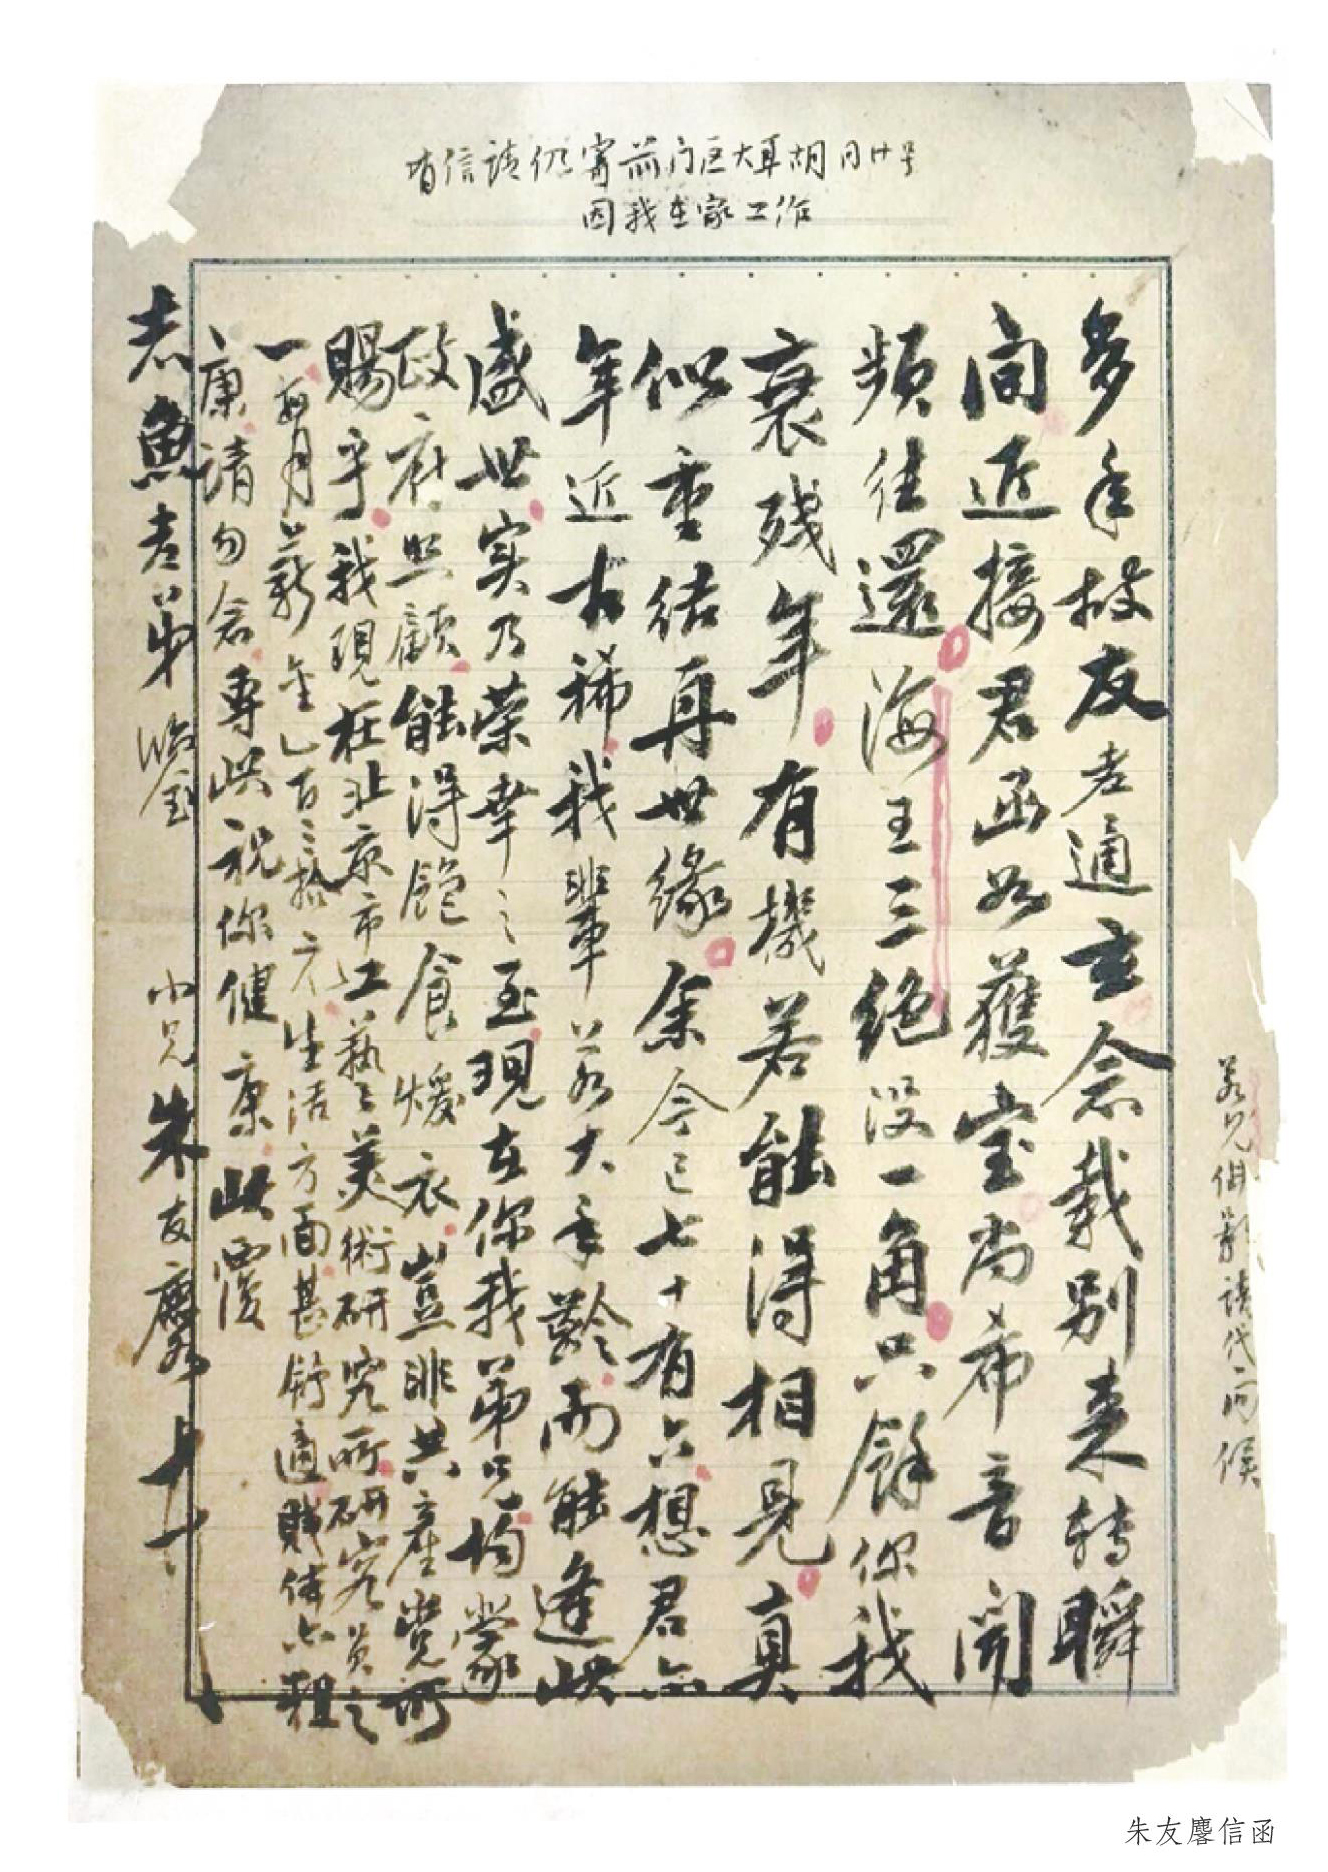 有信请仍寄前门区大耳胡同廿号
因我在家工作
多年故友老适玄念载别来转瞬
间近接君函如获宝尚希音闻
频往还海王三绝没一角只余你我
衰残年有机若能得相见真
似重结再世缘余今已七十有六想君亦
年近古稀我辈若大年龄而能逢此
盛世实乃荣幸之至现在你我弟兄均蒙
政府照顾能得饱食煖衣岂非共产党所
赐乎我现在北京市工艺美术研究所研究员之
一每月薪金乙百三拾元生活方面甚舒适贱体亦粗
康请勿念专此祝你健康此覆
志鱼老弟鉴 小兄朱友麐
若兄俱影请代问候
朱友麐信函